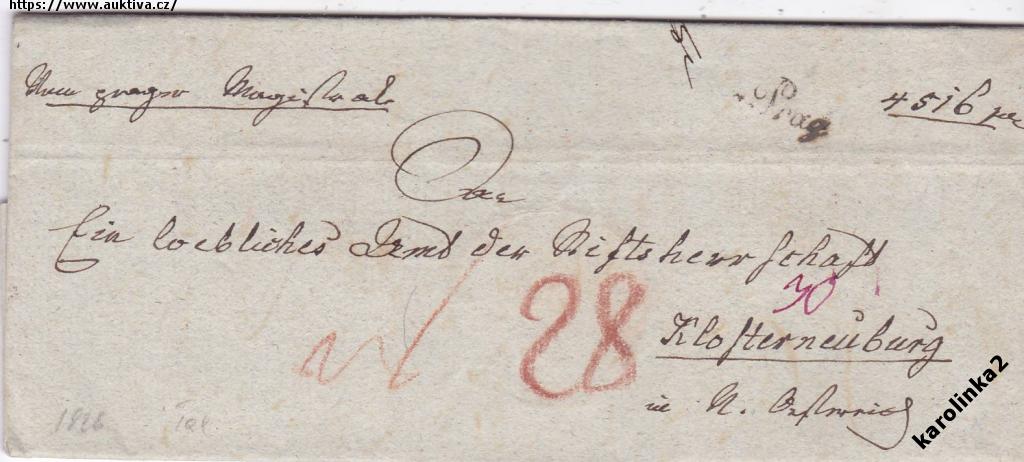 https://www.auktiva.cz/
Vom prager Magistrate
Prag
4516
An
Ein loebliches Amt der Stiftsherrschaft
30
28
Klosterneuburg
in N. Oesterreich
1828
karolinka2